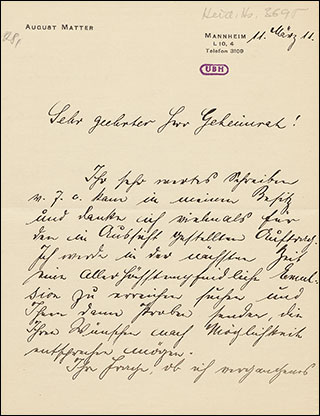 Heid. Hs. 3695
AUGUST MATTER
MANNHEIM 11. März 11.
L 10, 4
Telefon 3109
UBH
Sehr geehrter Herr Geheimrat!
Ihr sehr wertes Schreiben
v. 7. c. kam in meinen Besitz
und danke ich vielmals für
den in Aussicht gestellten Auftrag.
Ich werde in der nächsten Zeit
eine Allerhöchstempfindliche Emul-
sion zu erreichen suchen und
Ihnen dann Proben senden, die
Ihren Wünschen nach Möglichkeit
entsprechen mögen.
Ihr Frage, ob ich vergangenes